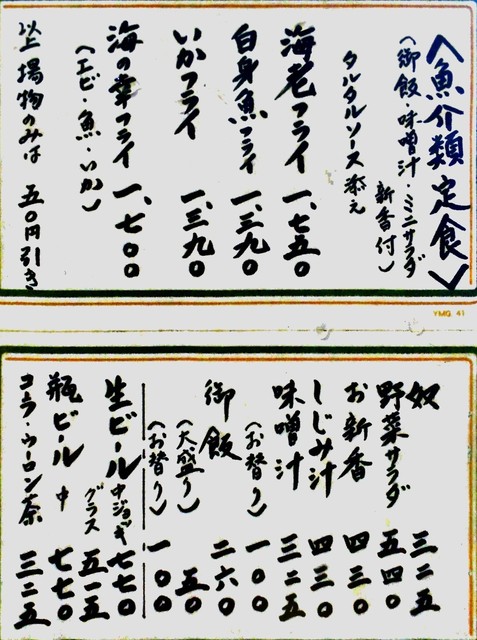 〈魚介類定食〉
(御飯・味噌汁・ミニサラダ
新香付)
タルタルソース添え
海老フライ 一、七五〇
白身魚フライ 一、三九〇
いかフライ 一、三九〇
海の幸フライ 一、七〇〇
(エビ・魚・いか)
以上揚物のみは 五〇円引き
YMG 41
奴 三二五
野菜サラダ 五四〇
お新香 四三〇
しじみ汁 四三〇
味噌汁 三二五
(お替り) 一〇〇
御飯 二六〇
(大盛り) 五〇
(お替り) 一〇〇
生ビール 中ジョッキ 七七〇
グラス 五一五
瓶ビール 中 七七〇
コーラ・ウーロン茶 三二五